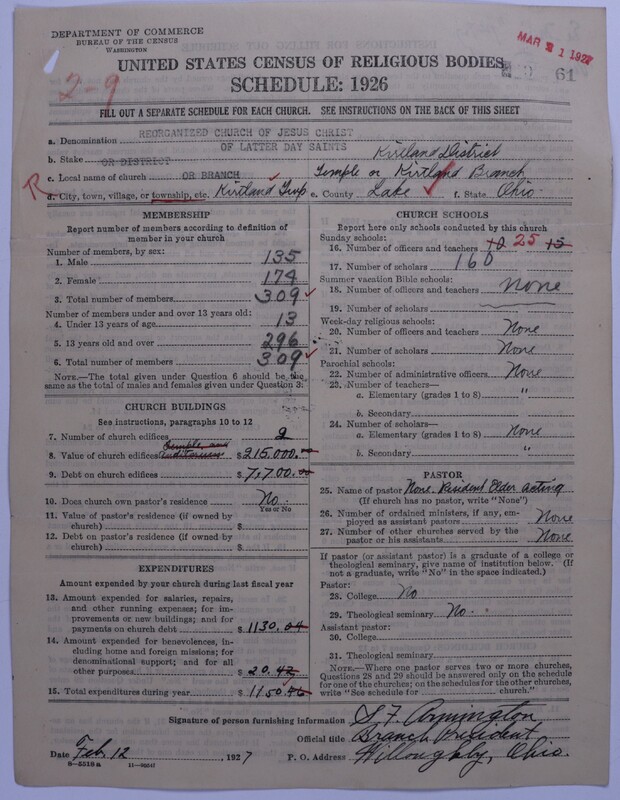 DEPARTMENT OF COMMERCE
BUREAU OF THE CENSUS
WASHINGTON
MAR 21 1927
UNITED STATES CENSUS OF RELIGIOUS BODIES
61
SCHEDULE: 1926
2-9
FILL OUT A SEPARATE SCHEDULE FOR EACH CHURCH. SEE INSTRUCTIONS ON THE BACK OF THIS SHEET
a. Denomination REORGANIZED CHURCH OF JESUS CHRIST
OF LATTER DAY SAINTS
b. Stake OR DISTRICT Kirtland District
c. Local name of church OR BRANCH Temple or Kirtland Branch
R d. City, town, village, or township, etc. Kirtland Twp e. County Lake f. State Ohio
MEMBERSHIP
Report number of members according to definition of
member in your church
Number of members, by sex:
1. Male 135
2. Female 174
3. Total number of members 309
Number of members under and over 13 years old:
4. Under 13 years of age 13
5. 13 years old and over 296
6. Total number of members 309
NOTE.—The total given under Question 6 should be the
same as the total of males and females given under Question 3.
CHURCH BUILDINGS
See instructions, paragraphs 10 to 12
7. Number of church edifices 2
Temple and
8. Value of church edifices Auditorium $ 215,000.00
9. Debt on church edifices $ 7,700.00
10. Does church own pastor's residence No
Yes or No
11. Value of pastor's residence (if owned by
church) $
12. Debt on pastor's residence (if owned by
church) $
EXPENDITURES
Amount expended by your church during last fiscal year
13. Amount expended for salaries, repairs,
and other running expenses; for im-
provements or new buildings; and for
payments on church debt $ 1130.04
14. Amount expended for benevolences, in-
cluding home and foreign missions; for
denominational support; and for all
other purposes $ 20.42
15. Total expenditures during year $ 1150.46
CHURCH SCHOOLS
Report here only schools conducted by this church
Sunday schools:
16. Number of officers and teachers 10 25 15
17. Number of scholars 160
Summer vacation Bible schools:
18. Number of officers and teachers None
19. Number of scholars
Week-day religious schools:
20. Number of officers and teachers None
21. Number of scholars None
Parochial schools:
22. Number of administrative officers None
23. Number of teachers—
a. Elementary (grades 1 to 8) "
b. Secondary
24. Number of scholars—
a. Elementary (grades 1 to 8) None
b. Secondary "
PASTOR
25. Name of pastor None. Resident Elder acting
(If church has no pastor, write "None")
26. Number of ordained ministers, if any, em-
ployed as assistant pastors None
27. Number of other churches served by the
pastor or his assistants None
If pastor (or assistant pastor) is a graduate of a college or
theological seminary, give name of institution below. (If
not a graduate, write "No" in the space indicated.)
Pastor:
28. College No
29. Theological seminary No
Assistant pastor:
30. College
31. Theological seminary
NOTE.—Where one pastor serves two or more churches,
Questions 28 and 29 should be answered only on the schedule
for one of the churches; on the schedules for the other churches,
write "See schedule for church."
Signature of person furnishing information
Official title Branch President
Date Feb, 12, 1927 P. O. Address Willoughby, Ohio.
8—5518a